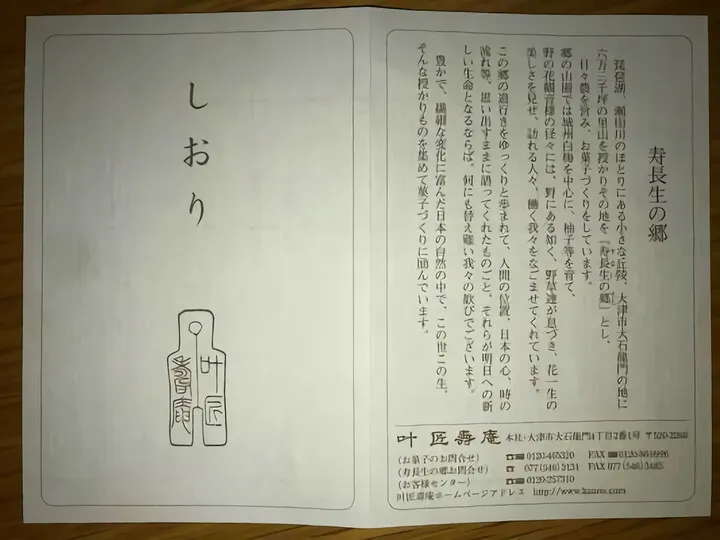 しおり
叶 匠
壽庵
寿長生の郷
琵琶湖、瀬田川のほとりにある小さな丘陵、大津市大石龍門の地に
六万三千坪の里山を授かりその地を「寿長生の郷」とし、
日々農を営み、お菓子づくりをしています。
郷の山園では城州白梅を中心に、柚子等を育て、
野の花観音様の径々には、野にある如く、野草達が息づき、花一生の
美しさを見せ、訪れる人々、働く我々をなごませてくれています。
この郷の道行きをゆっくりと歩まれて、人間の位置、日本の心、時の
流れ等、思い出すままに語ってくれたものごと、それらが明日への新
しい生命となるならば、何にも替え難い我々の歓びでございます。
豊かで、繊細な変化に富んだ日本の自然の中で、この世この生、
そんな授かりものを集めて菓子づくりに励んでいます。
叶 匠 壽 庵 本社・大津市大石龍門4丁目2番1号
(お菓子のお問合せ)
(寿長生の郷お問合せ) 077(546)3131
(お客様センター)
叶匠壽庵ホームページアドレス